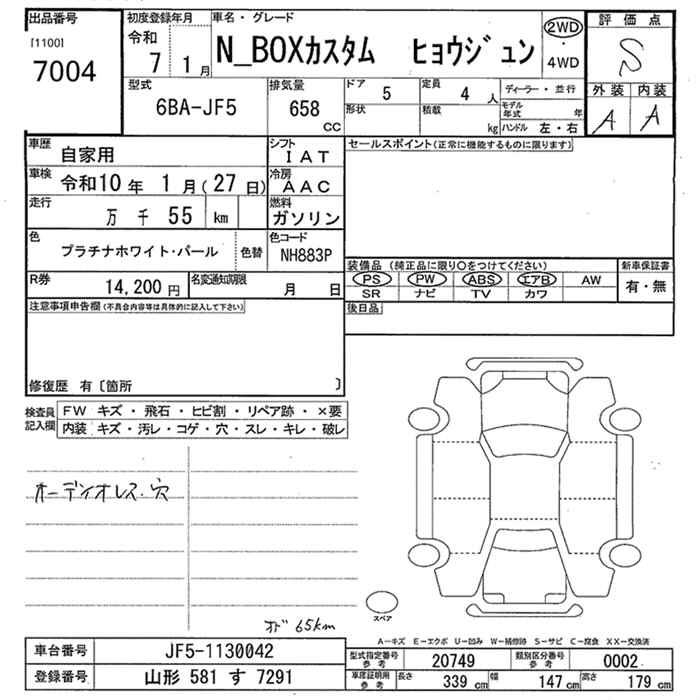 出品番号
[1100]
7004
初度登録年月
令和
7 1月
車名・グレード
N_BOXカスタム ヒョウジュン
2WD
・
4WD
評価点
S
外装 内装
A A
型式
6BA-JF5
排気量
658
CC
ドア 5
定員 4 人
形状
積載 kg
ディーラー・並行
モデル年式 年
ハンドル 左・右
車歴 自家用
シフト
IAT
車検 令和10年 1月(27日)
冷房
AAC
走行
万 千 55 km
燃料
ガソリン
色
プラチナホワイト・パール
色替
色コード
NH883P
R券
14,200円
名変通知期限
月 日
セールスポイント(正常に機能するものに限ります)
装備品 (純正品に限り○をつけてください)
新車保証書
PS PW ABS エアB AW
有・無
SR ナビ TV カワ
後日品
注意事項申告欄(不具合内容等は具体的に記入して下さい)
修復歴 有〔箇所 〕
検査員
記入欄
FW キズ・飛石・ヒビ割・リペア跡・×要
内装 キズ・汚レ・コゲ・穴・スレ・キレ・破レ
オーディオレス・穴
スペア
メーター 65km
A-キズ E-エクボ U-凹み W-補修跡 S-サビ C-腐食 XX-交換済
車台番号 JF5-1130042
型式指定番号
参考
20749
類別区分番号
参考
0002
登録番号 山形 581 す 7291
車庫証明用
参考
長さ 339 cm 幅 147 cm 高さ 179 cm